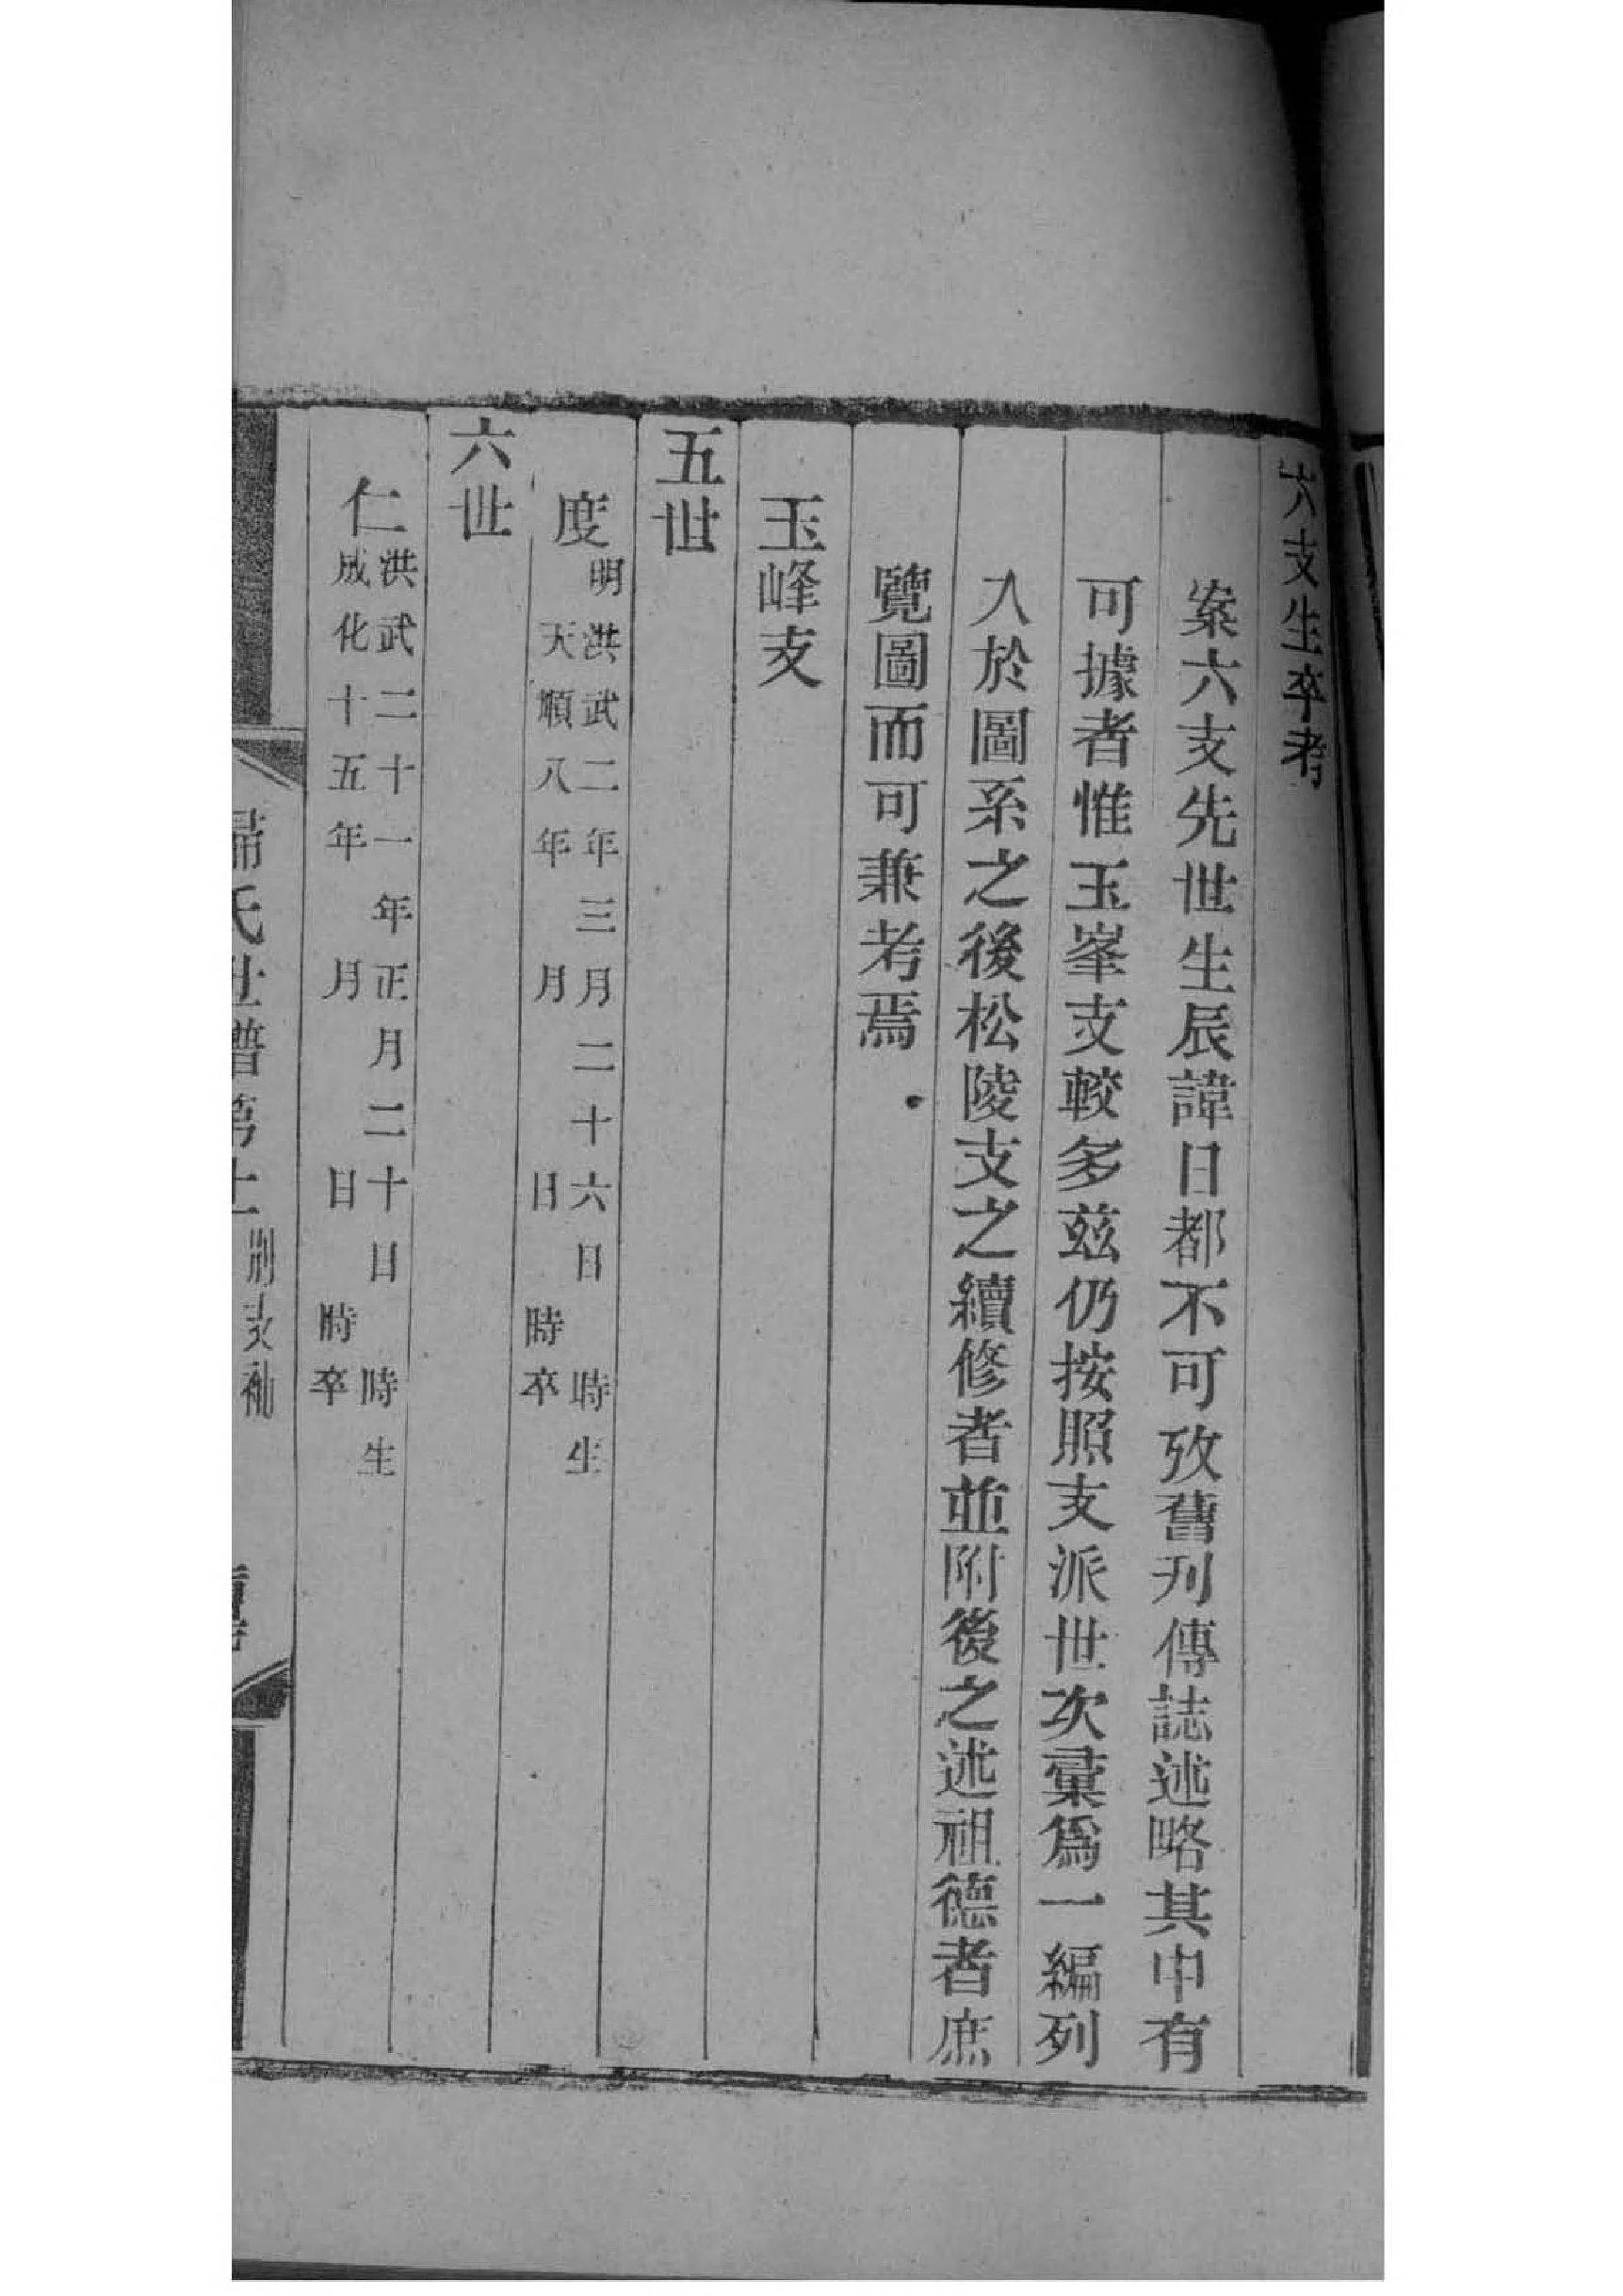 六支生卒考
案六支先世生辰諱日都不可攷舊刋傳誌述略其中有
可據者惟玉峯支較多茲仍按照支派世次彙爲一編列
入於圖系之後松陵支之續修者並附後之述祖德者庶
覽圖而可兼考焉
玉峰支
五世
度
明洪武二年三月二十六日 時生
天順八年 月 日 時卒
六世
仁
洪武二十一年正月二十日 時生
成化十五年 月 日 時卒
歸氏世譜第十